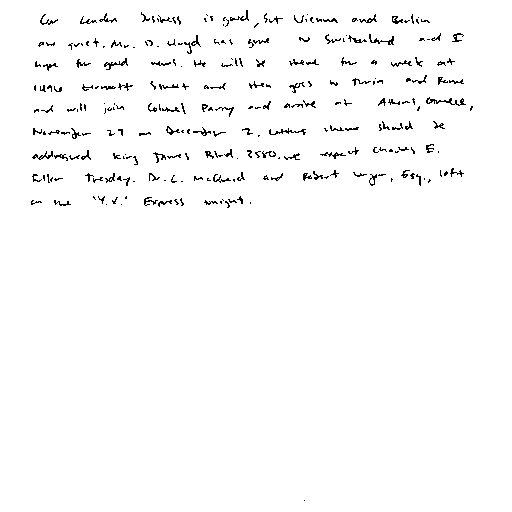 Our London business is good, but Vienna and Berlin
are quiet. Mr. D. Lloyd has gone to Switzerland and I
hope for good news. He will be there for a week at
1496 Zermott Street and then goes to Turin and Rome
and will join Colonel Parry and arrive at Athens, Greece,
November 27 or December 2. Letters there should be
addressed King James Blvd. 3580. We expect Charles E.
Fuller Tuesday. Dr. L. McQuaid and Robert Unger, Esq., left
on the "Y.X." Express tonight.